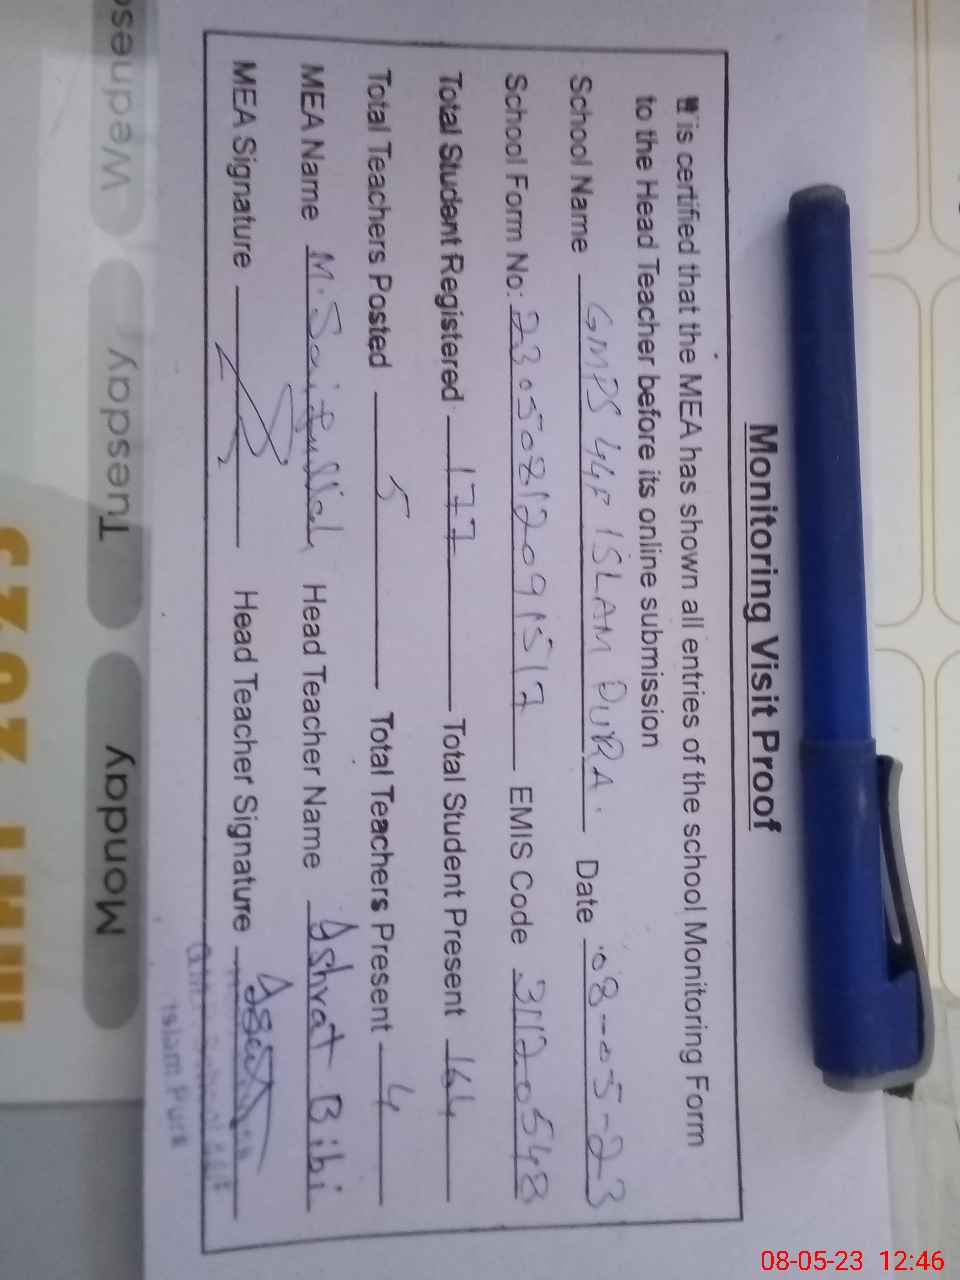 Monitoring Visit Proof
It is certified that the MEA has shown all entries of the school Monitoring Form
to the Head Teacher before its online submission
School Name GMPS 44F ISLAM PURA. Date 08-05-23
School Form No: 23050812091517 EMIS Code 31120548
Total Student Registered 177 Total Student Present 164
Total Teachers Posted 5 Total Teachers Present 4
MEA Name M. Saifullah Head Teacher Name Ishrat Bibi
MEA Signature Head Teacher Signature
Islam Pura
Monday
Tuesday
Wednes
08-05-23 12:46